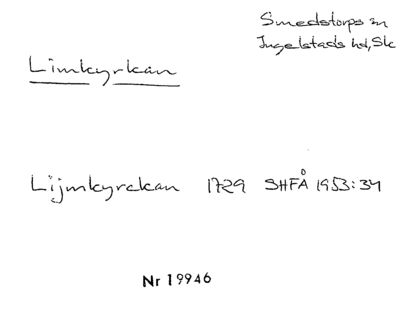 Smedstorps sn
Ingelstads hd, Sk
Limkyrkan
Lijmkyrckan 1729 SHFÅ 1953:34
Nr 19946